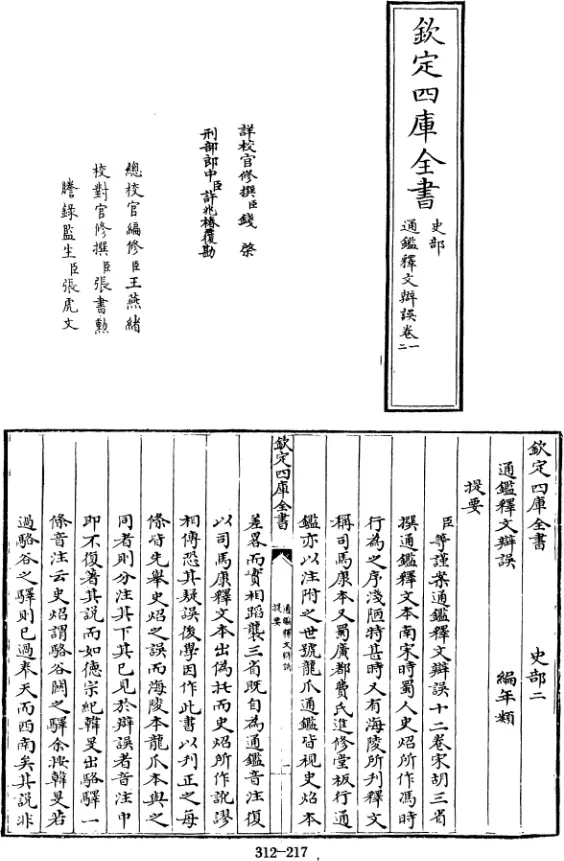 欽定四庫全書
史部
通鑑釋文辯誤卷一二
詳校官修撰臣錢棨
刑部郎中臣許兆椿覆勘
總校官編修臣王燕緒
校對官修撰臣張書勳
謄錄監生臣張虎文
欽定四庫全書 史部二
通鑑釋文辯誤 編年類
提要
臣等謹案通鑑釋文辯誤十二卷宋胡三省
撰通鑑釋文本南宋時蜀人史炤所作馮時
行為之序淺陋特甚時又有海陵所刋釋文
稱司馬康本又蜀廣都費氏進修堂板行通
鑑亦以注附之世號龍爪通鑑皆視史炤本
欽定四庫全書
通鑑釋文辯誤
提要
差畧而實相蹈襲三省既自為通鑑音注復
以司馬康釋文本出偽托而史炤所作訛謬
相傳恐其疑誤後學因作此書以刋正之每
條皆先舉史炤之誤而海陵本龍爪本與之
同者則分注其下其已見於辯誤者音注中
即不復著其説而如德宗紀韓旻出駱驛一
條音注云史炤謂駱谷關之驛余按韓旻若
過駱谷之驛則已過奉天而西南矣其説非
312–217